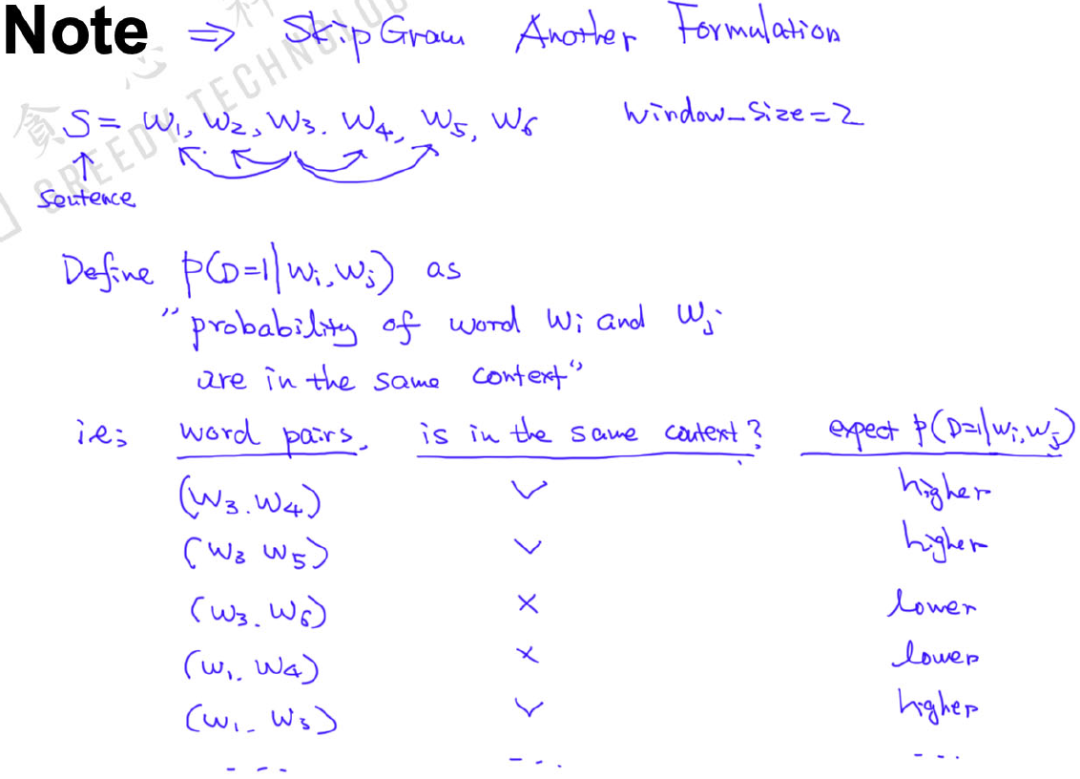 Note ⇒ SkipGram Another Formulation
S = W₁, W₂, W₃. W₄, W₅, W₆ window_size=2
↑
Sentence
Define p(D=1|wᵢ, wⱼ) as
"probability of word wᵢ and wⱼ
are in the same context"
ie: word pairs. is in the same context? expect p(D=1|wᵢ, wⱼ)
(W₃. W₄) ✓ higher
(W₃ W₅) ✓ higher
(W₃. W₆) × lower
(W₁. W₄) × lower
(W₁ - W₃) ✓ higher
--- --- ---
贪心科
GREEDY TECHNOLO